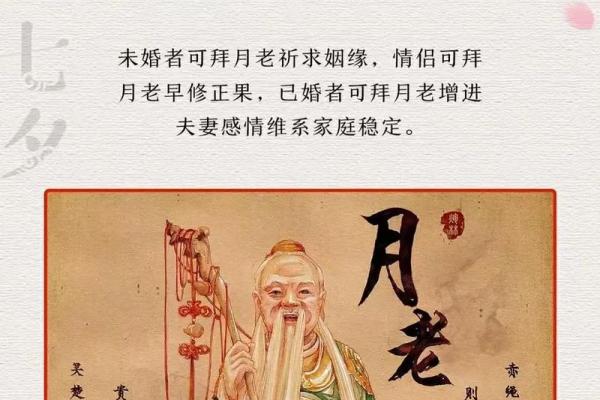 七夕
未婚者可拜月老祈求姻缘，情侣可拜
月老早修正果，已婚者可拜月老增进
夫妻感情维系家庭稳定。
月老
赤绳
则
贵
吴楚